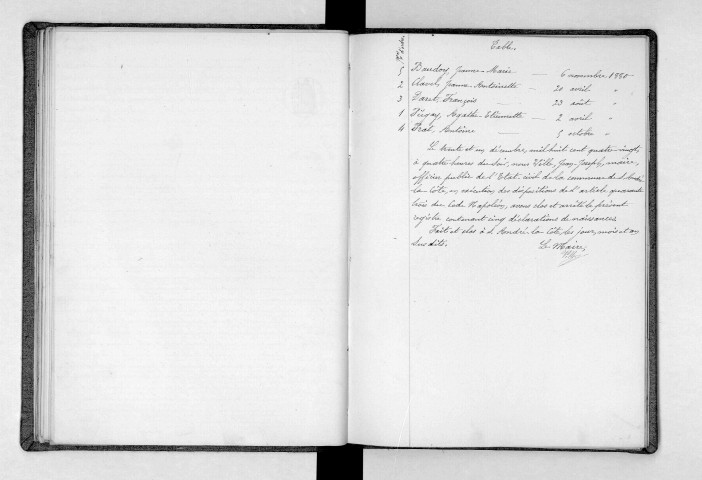 Table.
Nos d'ordre
5 Baudoy, Jeanne-Marie — 6 novembre 1880
2 Clavel, Jeanne-Antoinette — 20 avril "
3 Daret, François — 23 août "
1 Dugay, Agathe-Etiennette — 2 avril "
4 Prat, Antoine — 5 octobre "
Le trente et un décembre, mil huit cent quatre-vingt,
à quatre heures du soir, nous Ville, Jean-Joseph, maire,
officier public de l'Etat-civil de la commune de St André-
la-Côte, en exécution des dispositions de l'article quarante
trois du Code Napoléon, avons clos et arrêté le présent
registre contenant cinq déclarations de naissances.
Fait et clos à St André-la-Côte, les jour, mois et an
sus dits.
Le Maire,